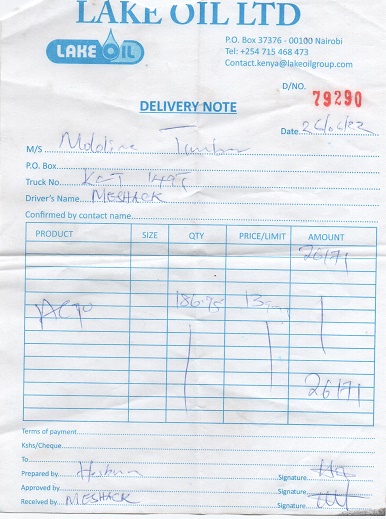 LAKE OIL LTD
LAKE OIL
P.O. Box 37376 - 00100 Nairobi
Tel: +254 715 468 473
Contact.kenya@lakeoilgroup.com
D/NO. 79290
DELIVERY NOTE
Date
M/S
P.O. Box
Truck No.
Driver's Name MESHACK
Confirmed by contact name
PRODUCT SIZE QTY PRICE/LIMIT AMOUNT
26171
186.75
26171
Terms of payment
Kshs/Cheque
To
Prepared by Signature
Approved by Signature
Received by MESHACK Signature